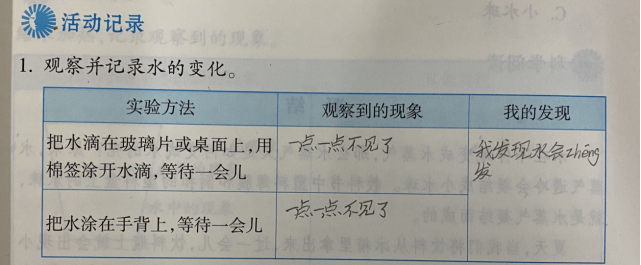 活动记录
1. 观察并记录水的变化。
实验方法 观察到的现象 我的发现
把水滴在玻璃片或桌面上，用
棉签涂开水滴，等待一会儿
一点一点不见了
我发现水会zhēng
发
把水涂在手背上，等待一会儿
一点一点不见了